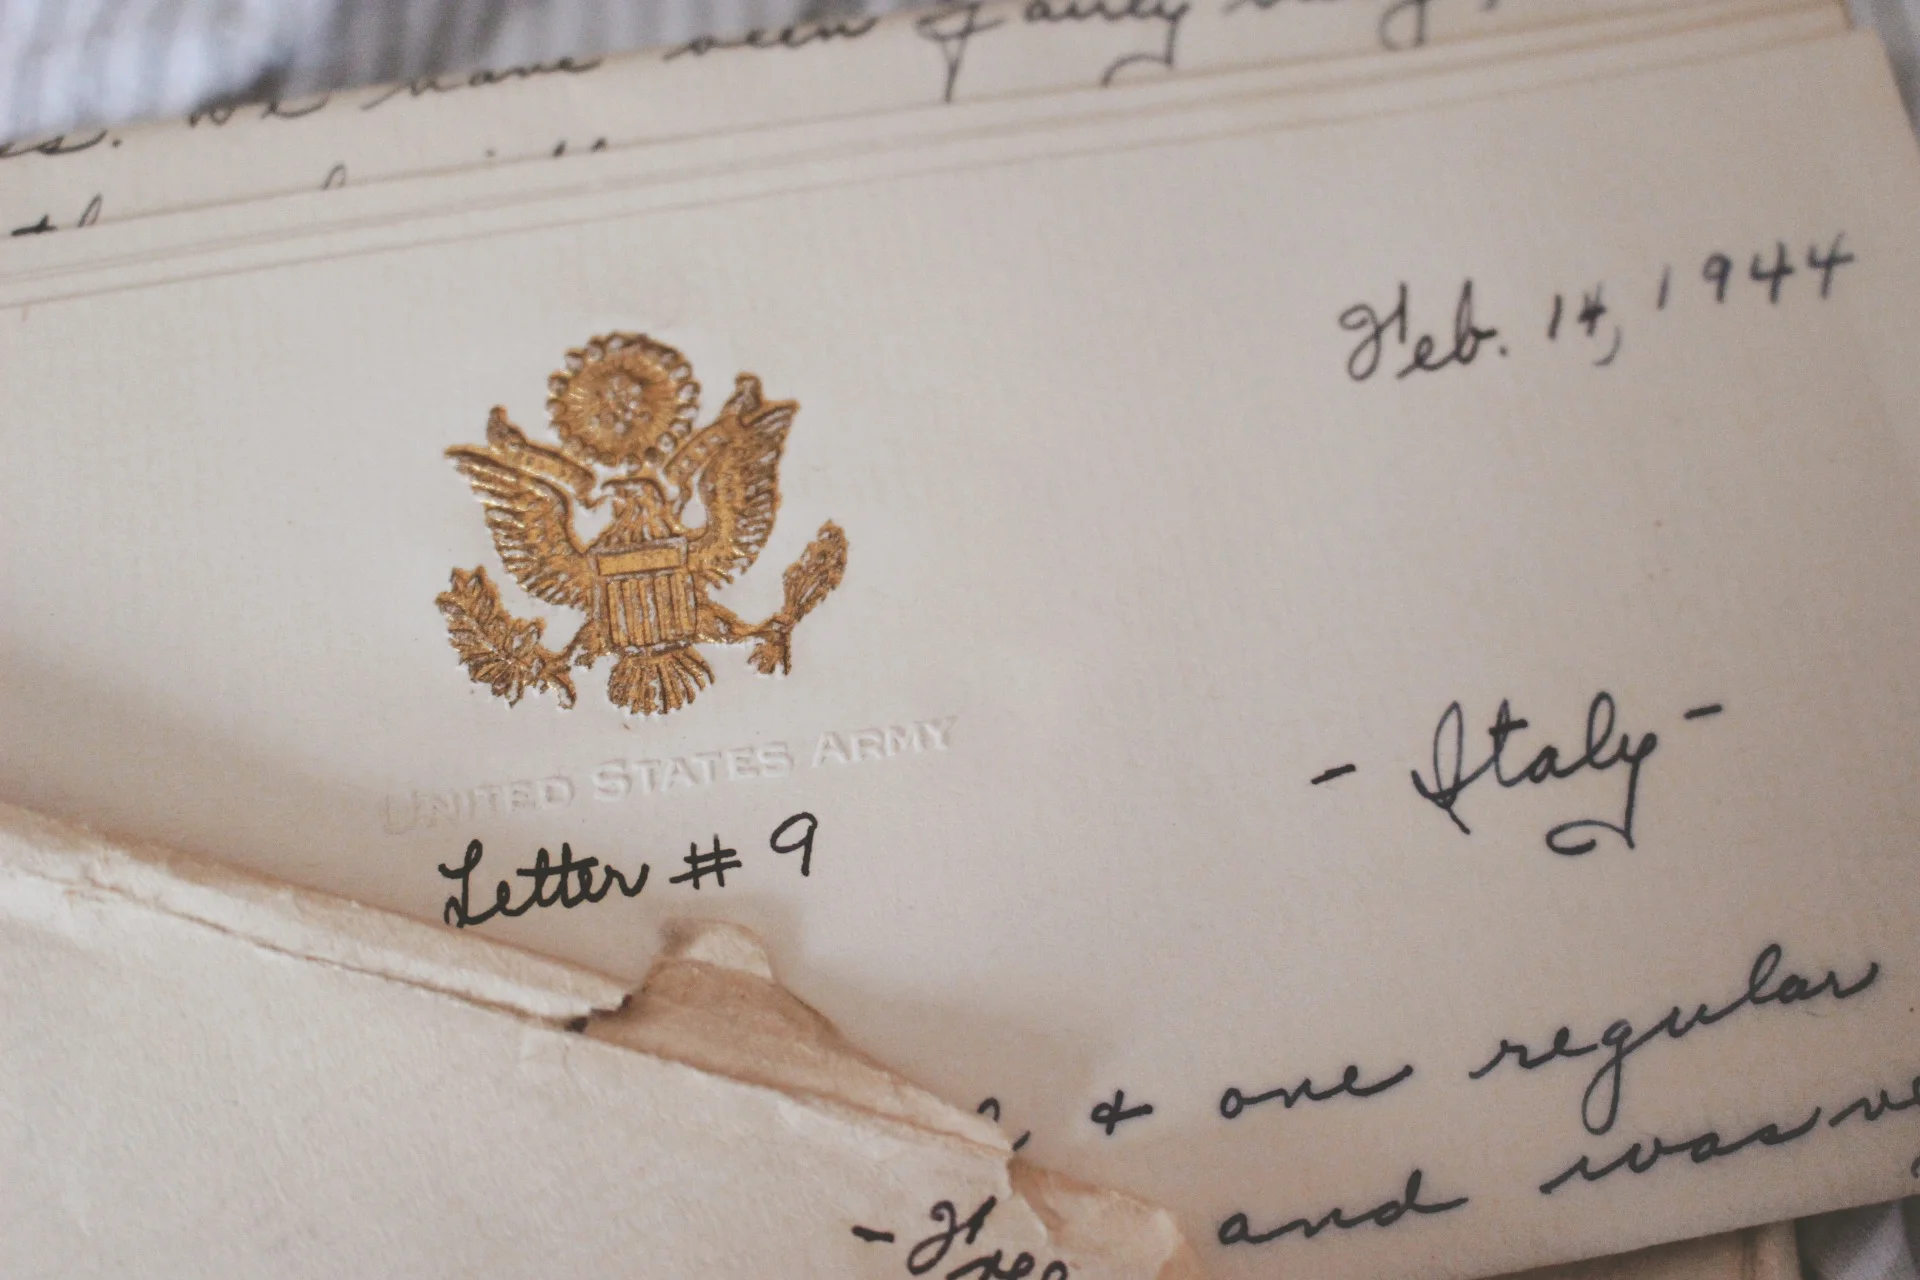 es. We have been fairly
Feb. 14, 1944
UNITED STATES ARMY
- Italy -
Letter # 9
& one regular
and was